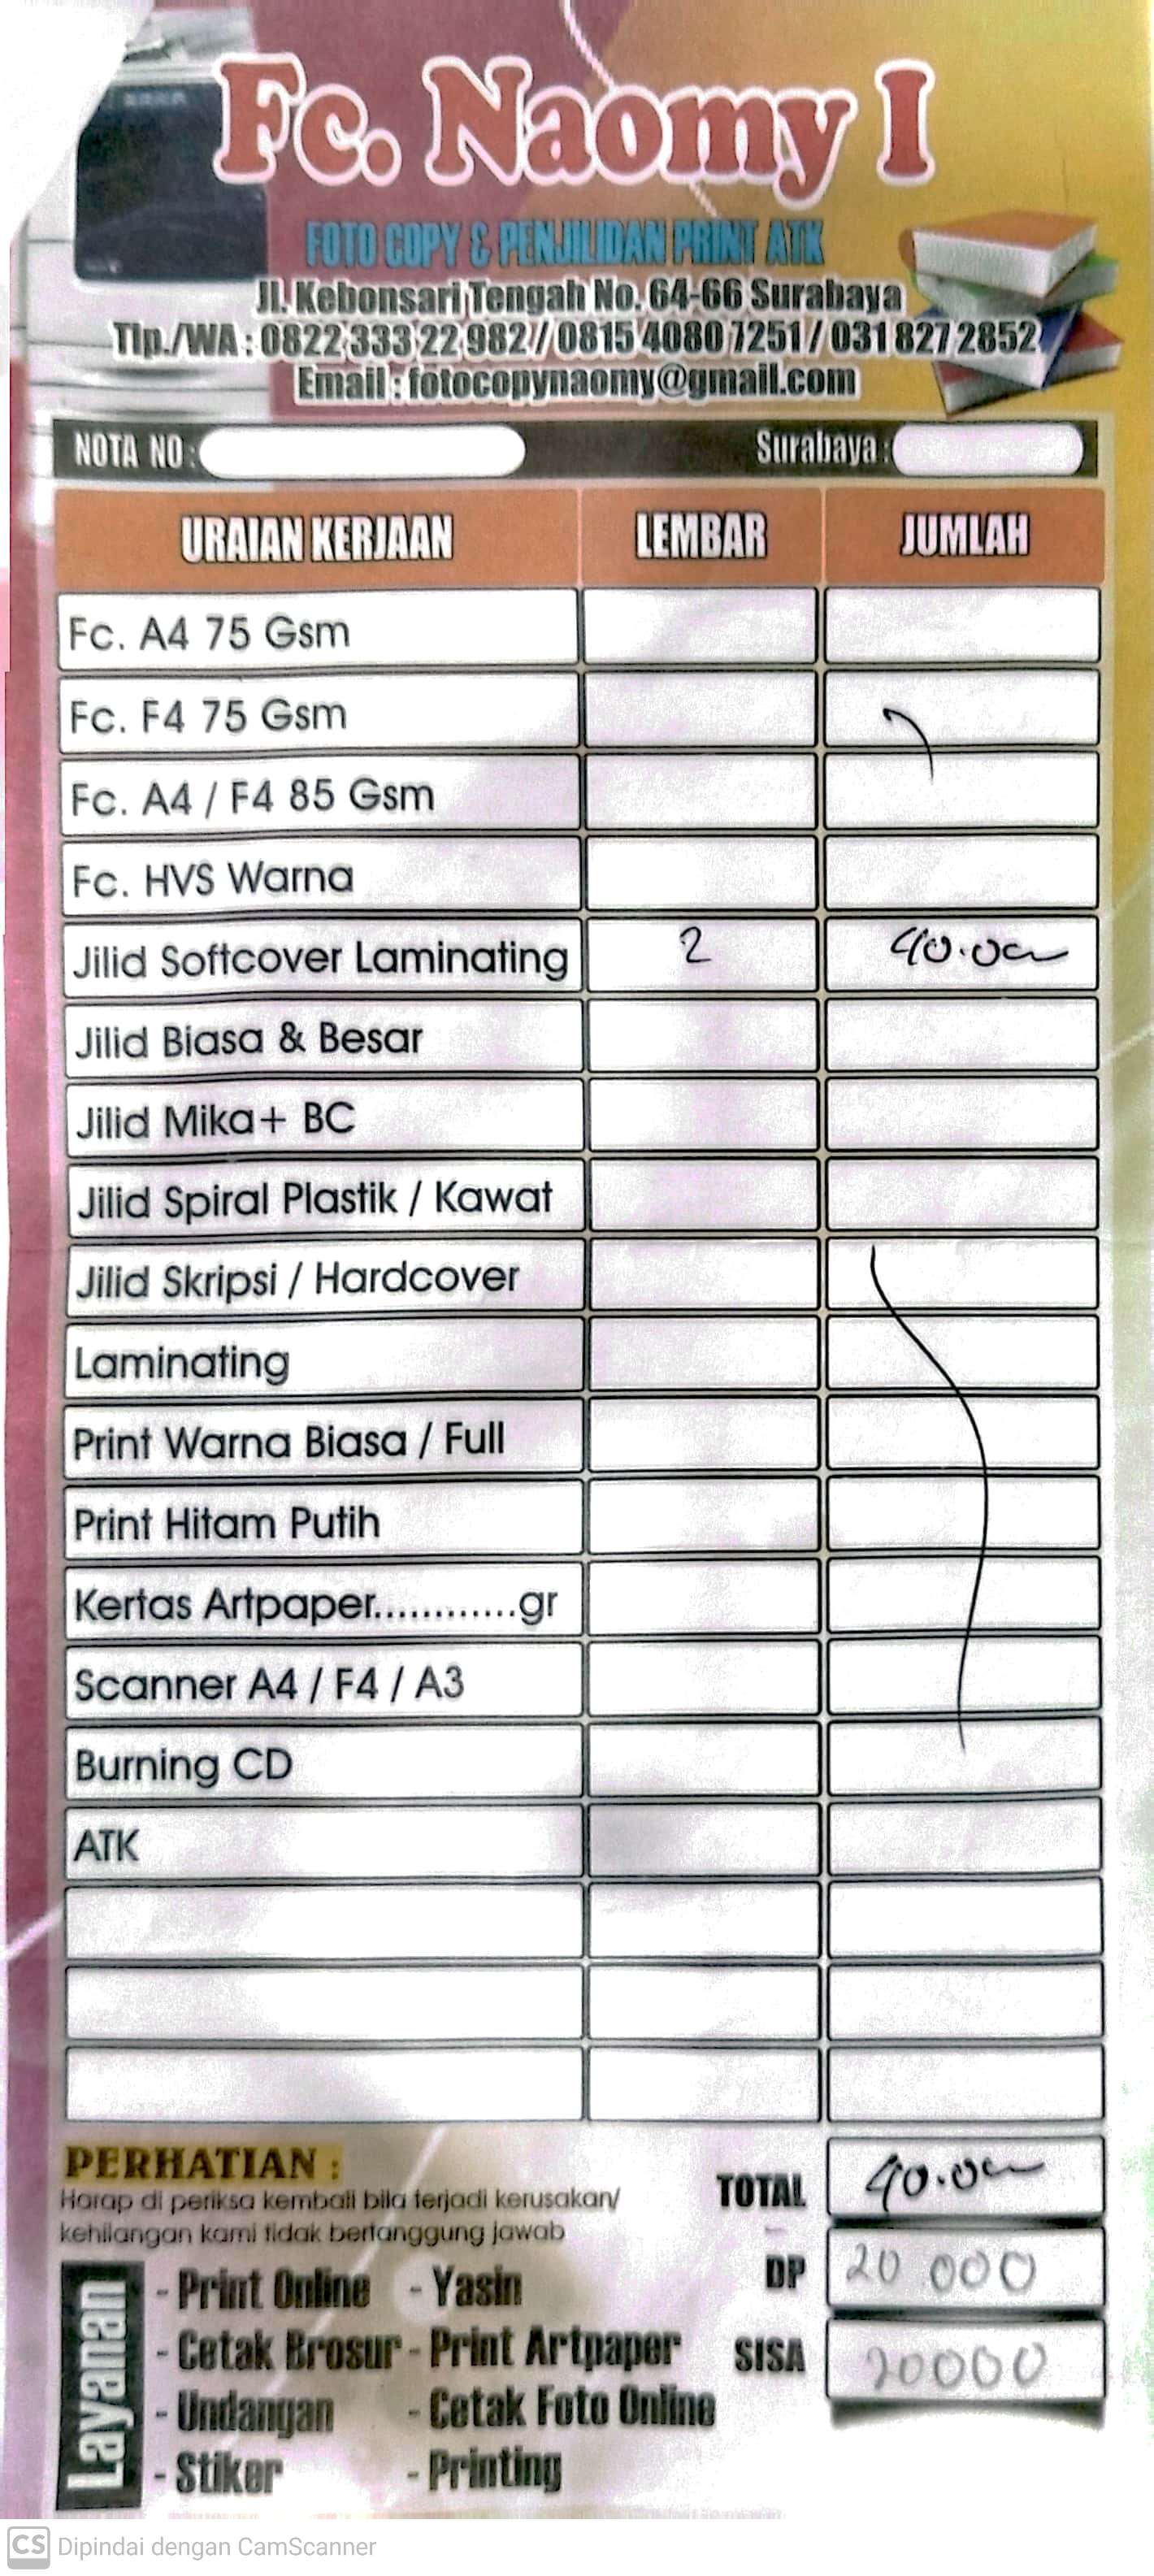 Fc. Naomy I
FOTO COPY & PENJILIDAN PRINT ATK
Jl. Kebonsari Tengah No. 64-66 Surabaya
Tlp./WA : 0822 333 22 982 / 0815 4080 7251 / 031 827 2852
Email : fotocopynaomy@gmail.com
NOTA NO : Surabaya :
URAIAN KERJAAN LEMBAR JUMLAH
Fc. A4 75 Gsm
Fc. F4 75 Gsm
Fc. A4 / F4 85 Gsm
Fc. HVS Warna
Jilid Softcover Laminating 2 40.000
Jilid Biasa & Besar
Jilid Mika+ BC
Jilid Spiral Plastik / Kawat
Jilid Skripsi / Hardcover
Laminating
Print Warna Biasa / Full
Print Hitam Putih
Kertas Artpaper............gr
Scanner A4 / F4 / A3
Burning CD
ATK
PERHATIAN :
Harap di periksa kembali bila terjadi kerusakan/
kehilangan kami tidak bertanggung jawab
TOTAL 40.000
DP 20 000
SISA 20000
Layanan
- Print Online - Yasin
- Cetak Brosur - Print Artpaper
- Undangan - Cetak Foto Online
- Stiker - Printing
CS Dipindai dengan CamScanner